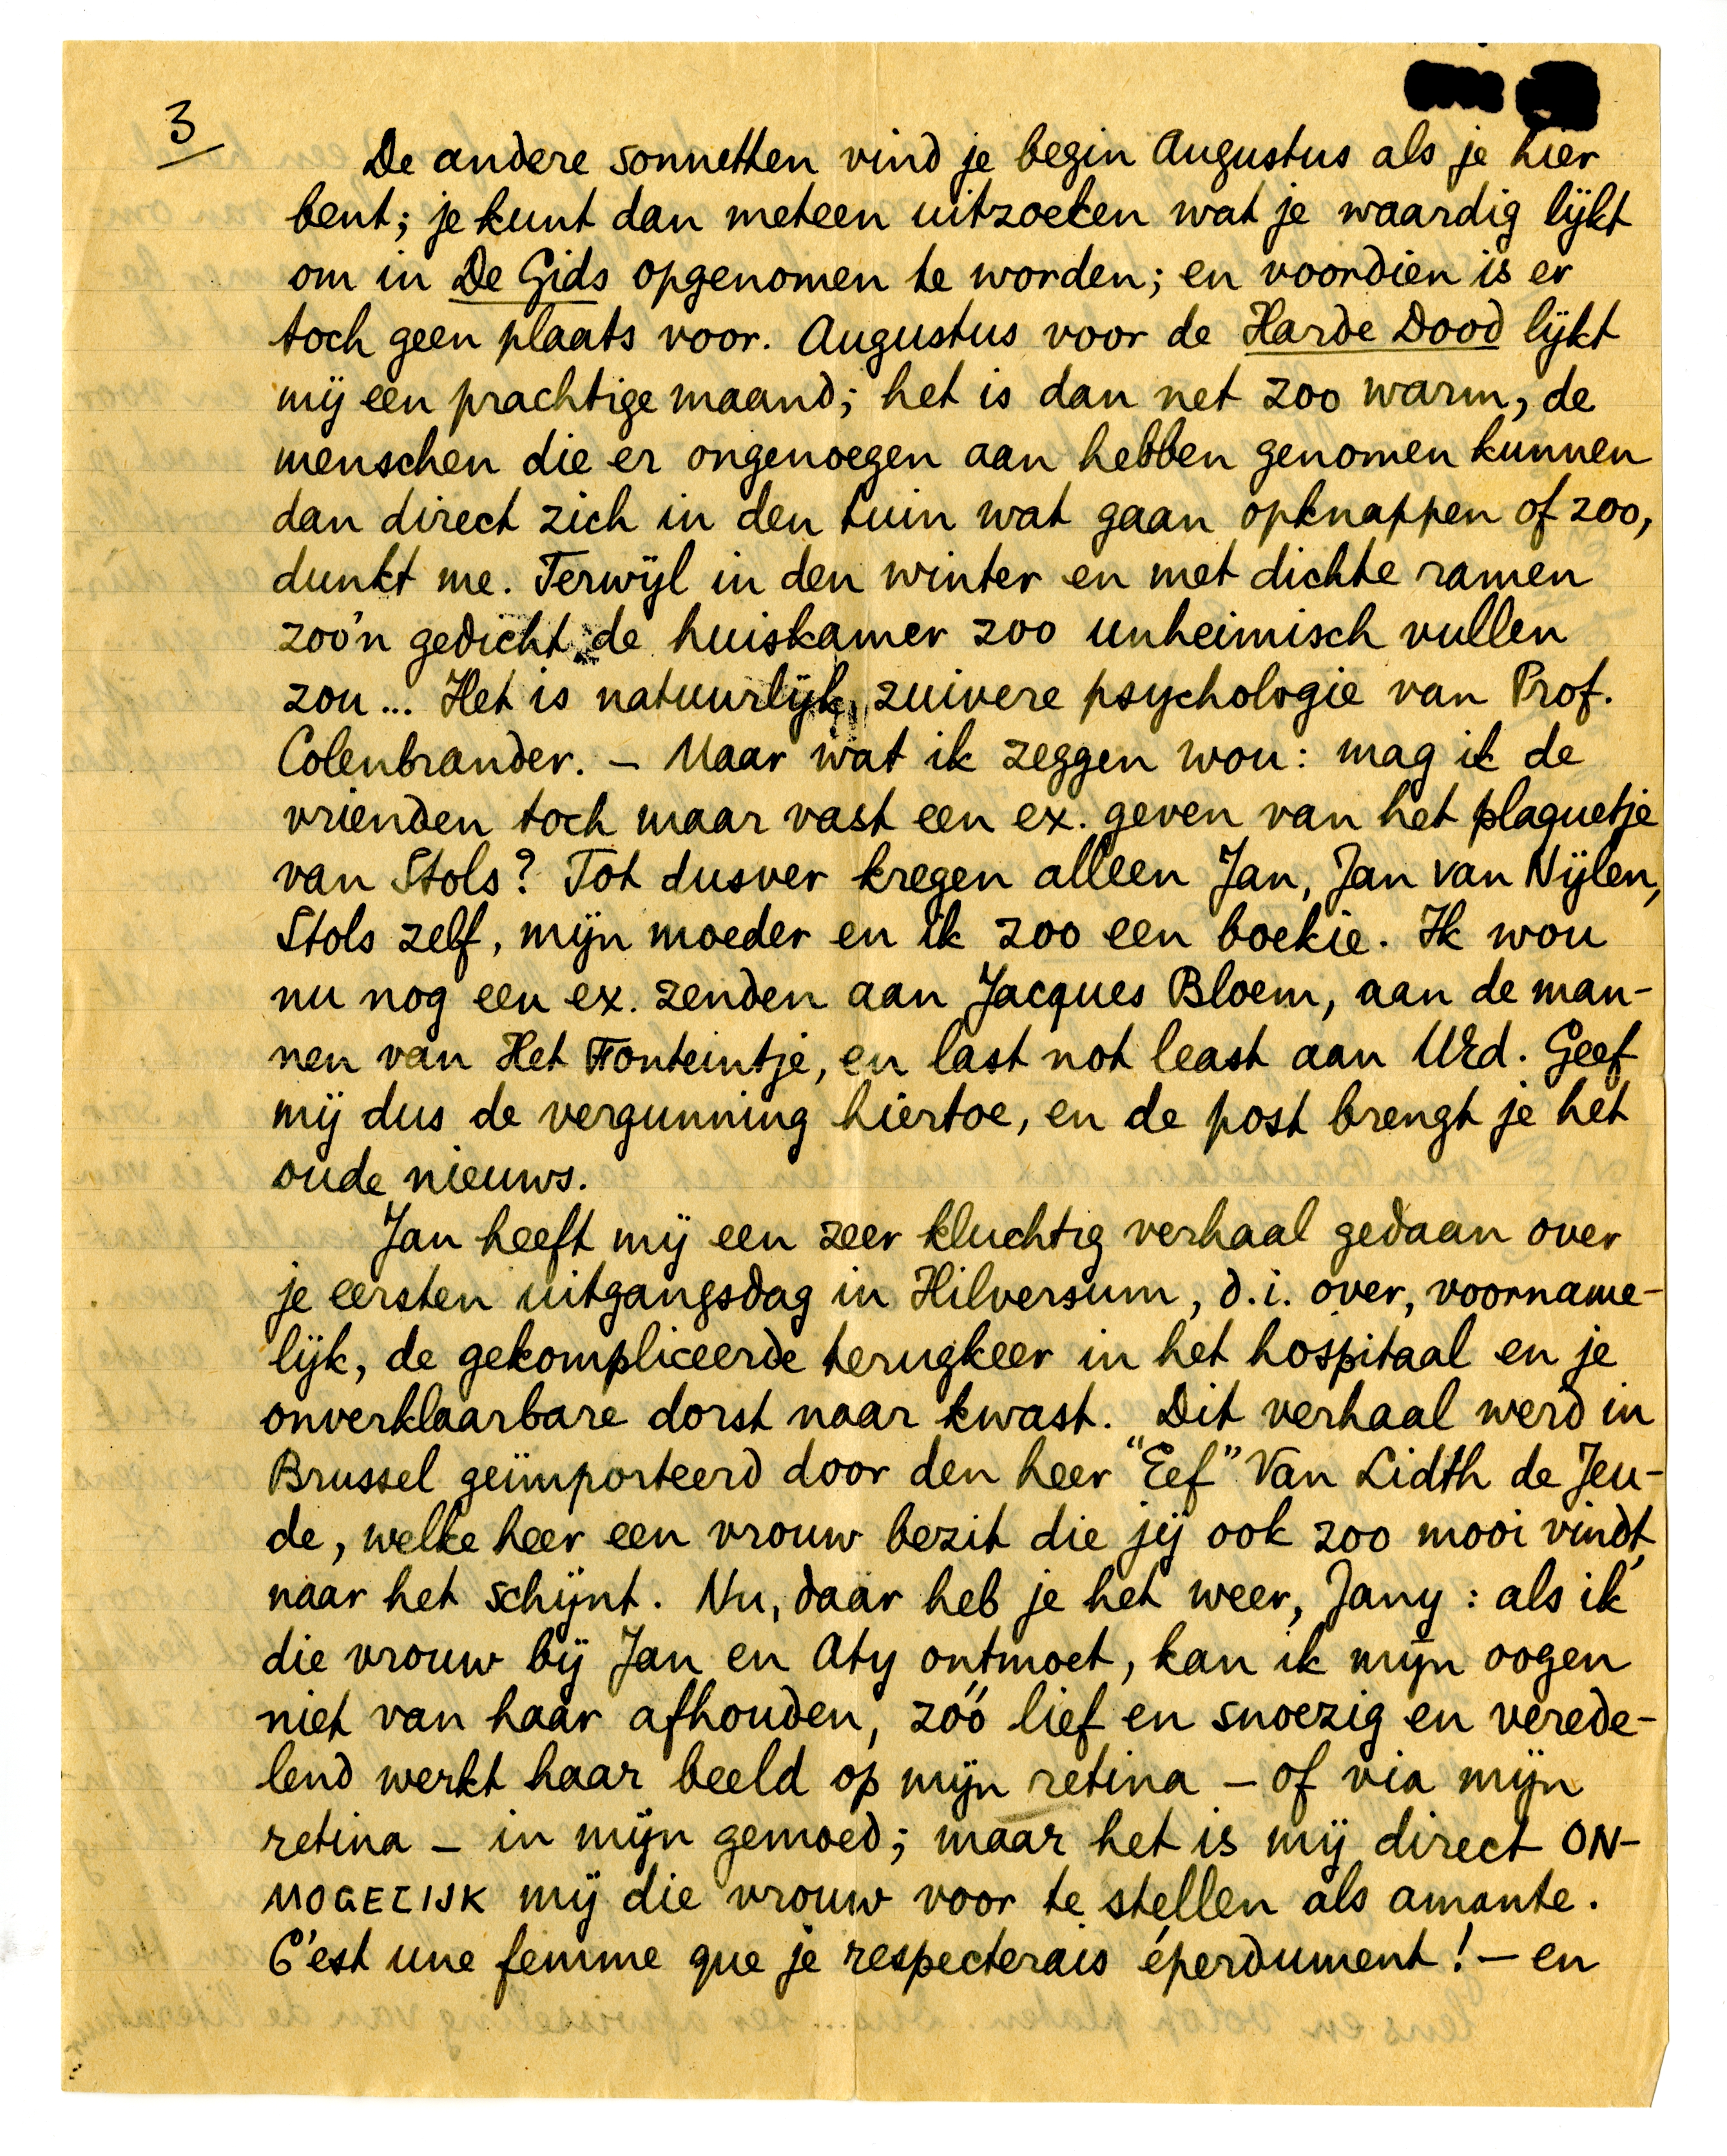 3
De andere sonnetten vind je begin Augustus als je hier
bent; je kunt dan meteen uitzoeken wat je waardig lijkt
om in De Gids opgenomen te worden; en voordien is er
toch geen plaats voor. Augustus voor de Harde Dood lijkt
mij een prachtige maand; het is dan net zoo warm, de
menschen die er ongenoegen aan hebben genomen kunnen
dan direct zich in den tuin wat gaan opknappen of zoo,
dunkt me. Terwijl in den winter en met dichte ramen
zoo'n gedicht de huiskamer zoo unheimisch vullen
zou... Het is natuurlijk zuivere psychologie van Prof.
Colenbrander. – Maar wat ik zeggen wou: mag ik de
vrienden toch maar vast een ex. geven van het plaquetje
van Stols? Tot dusver kregen alleen Jan, Jan van Nijlen,
Stols zelf, mijn moeder en ik zoo een boekie. Ik wou
nu nog een ex. zenden aan Jacques Bloem, aan de man-
nen van Het Fonteintje, en last not least aan UEd. Geef
mij dus de vergunning hiertoe, en de post brengt je het
oude nieuws.
Jan heeft mij een zeer kluchtig verhaal gedaan over
je eersten uitgangsdag in Hilversum, d.i. over, voorname-
lijk, de gekompliceerde terugkeer in het hospitaal en je
onverklaarbare dorst naar kwast. Dit verhaal werd in
Brussel geïmporteerd door den heer "Eef" Van Lidth de Jeu-
de, welke heer een vrouw bezit die jij ook zoo mooi vindt,
naar het schijnt. Nu, daar heb je het weer, Jany: als ik
die vrouw bij Jan en Aty ontmoet, kan ik mijn oogen
niet van haar afhouden, zóó lief en snoezig en verede-
lend werkt haar beeld op mijn retina – of via mijn
retina – in mijn gemoed; maar het is mij direct ON-
MOGELIJK mij die vrouw voor te stellen als amante.
C'est une femme que je respecterais éperdument! – en